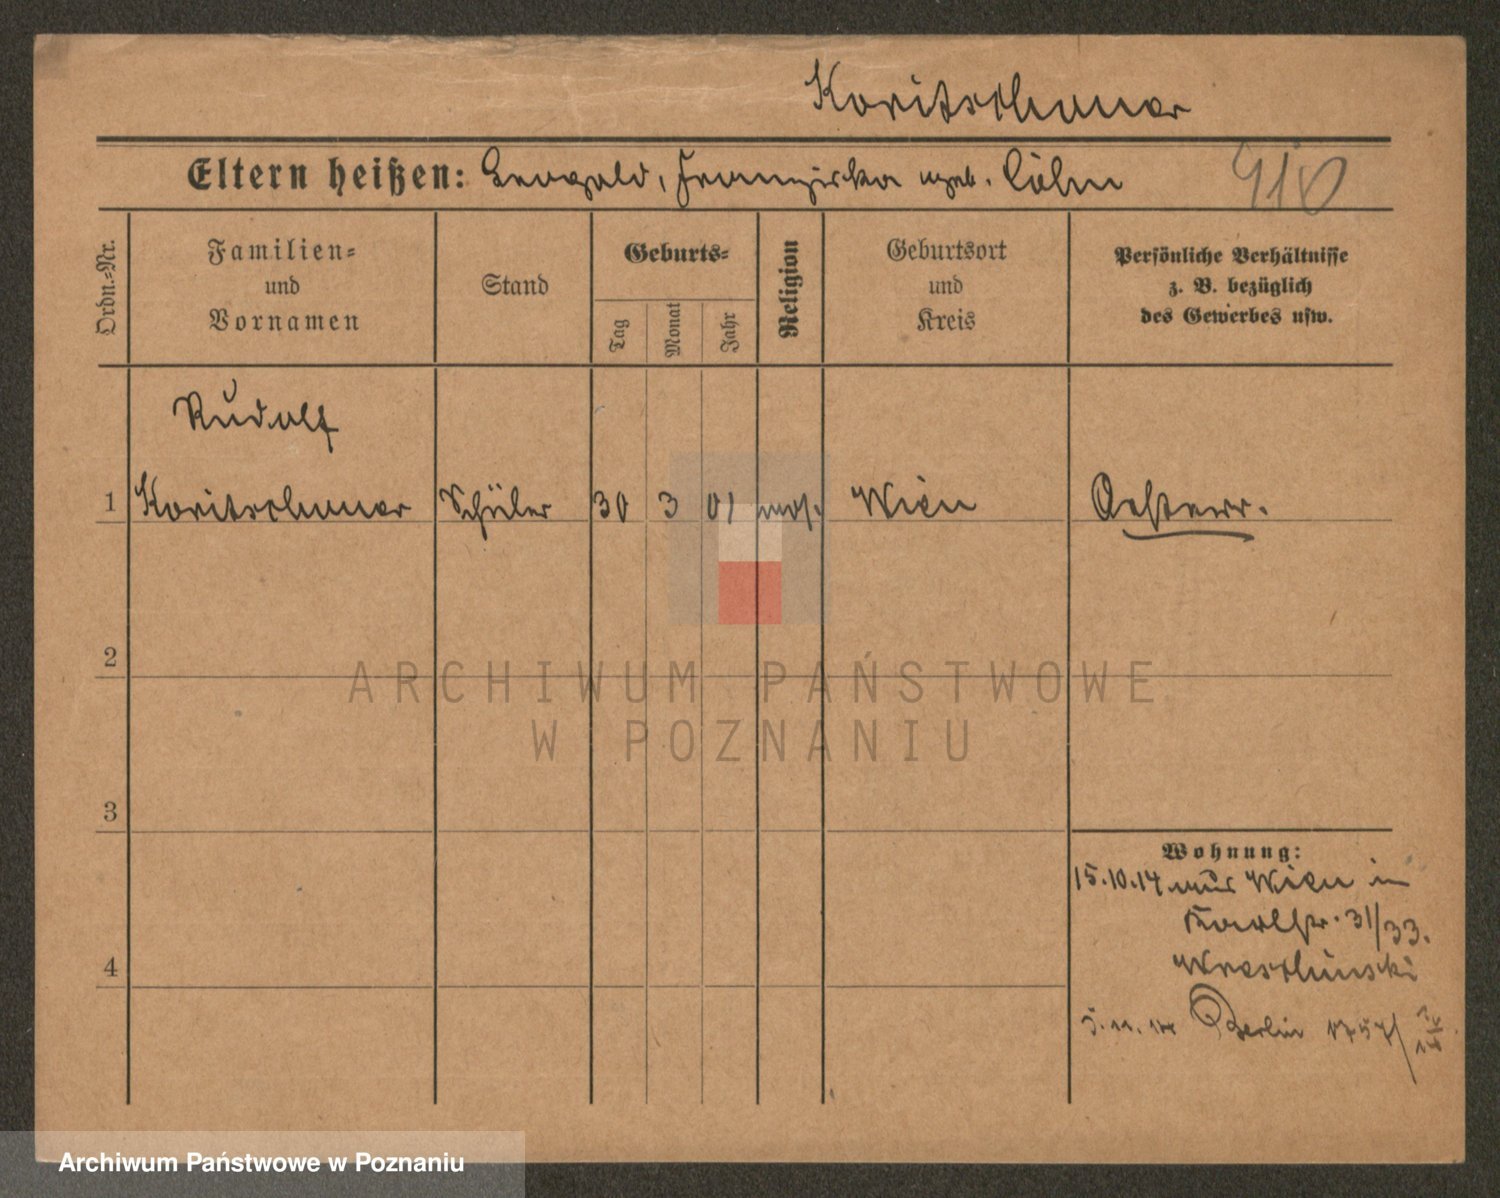 Koritschoner
Eltern heißen: Leopold, Franziska geb. Cölm
910
Ordn.-Nr.
Familien-
und
Vornamen
Stand
Geburts-
Tag
Monat
Jahr
Religion
Geburtsort
und
Kreis
Persönliche Verhältnisse
z. B. bezüglich
des Gewerbes usw.
Rudolf
1 Koritschoner Schüler 30 3 01 mos. Wien Oesterr.
2
ARCHIWUM PAŃSTWOWE
W POZNANIU
3
Wohnung:
15.10.14 aus Wien in
31/33.
4
Berlin
Archiwum Państwowe w Poznaniu